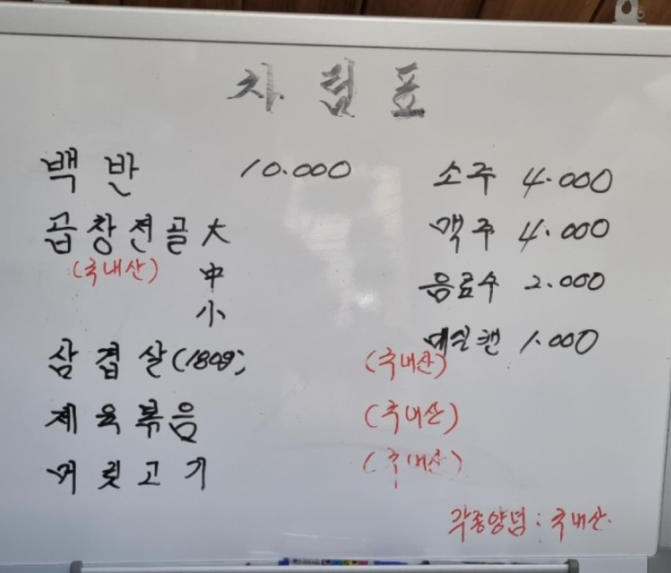 차림표
백반 10.000
곱창전골 大
(국내산) 中
小
삼겹살(180g)
(국내산)
제육볶음 (국내산)
머릿고기 (국내산)
소주 4.000
맥주 4.000
음료수 2.000
매실캔 1.000
각종양념 : 국내산.